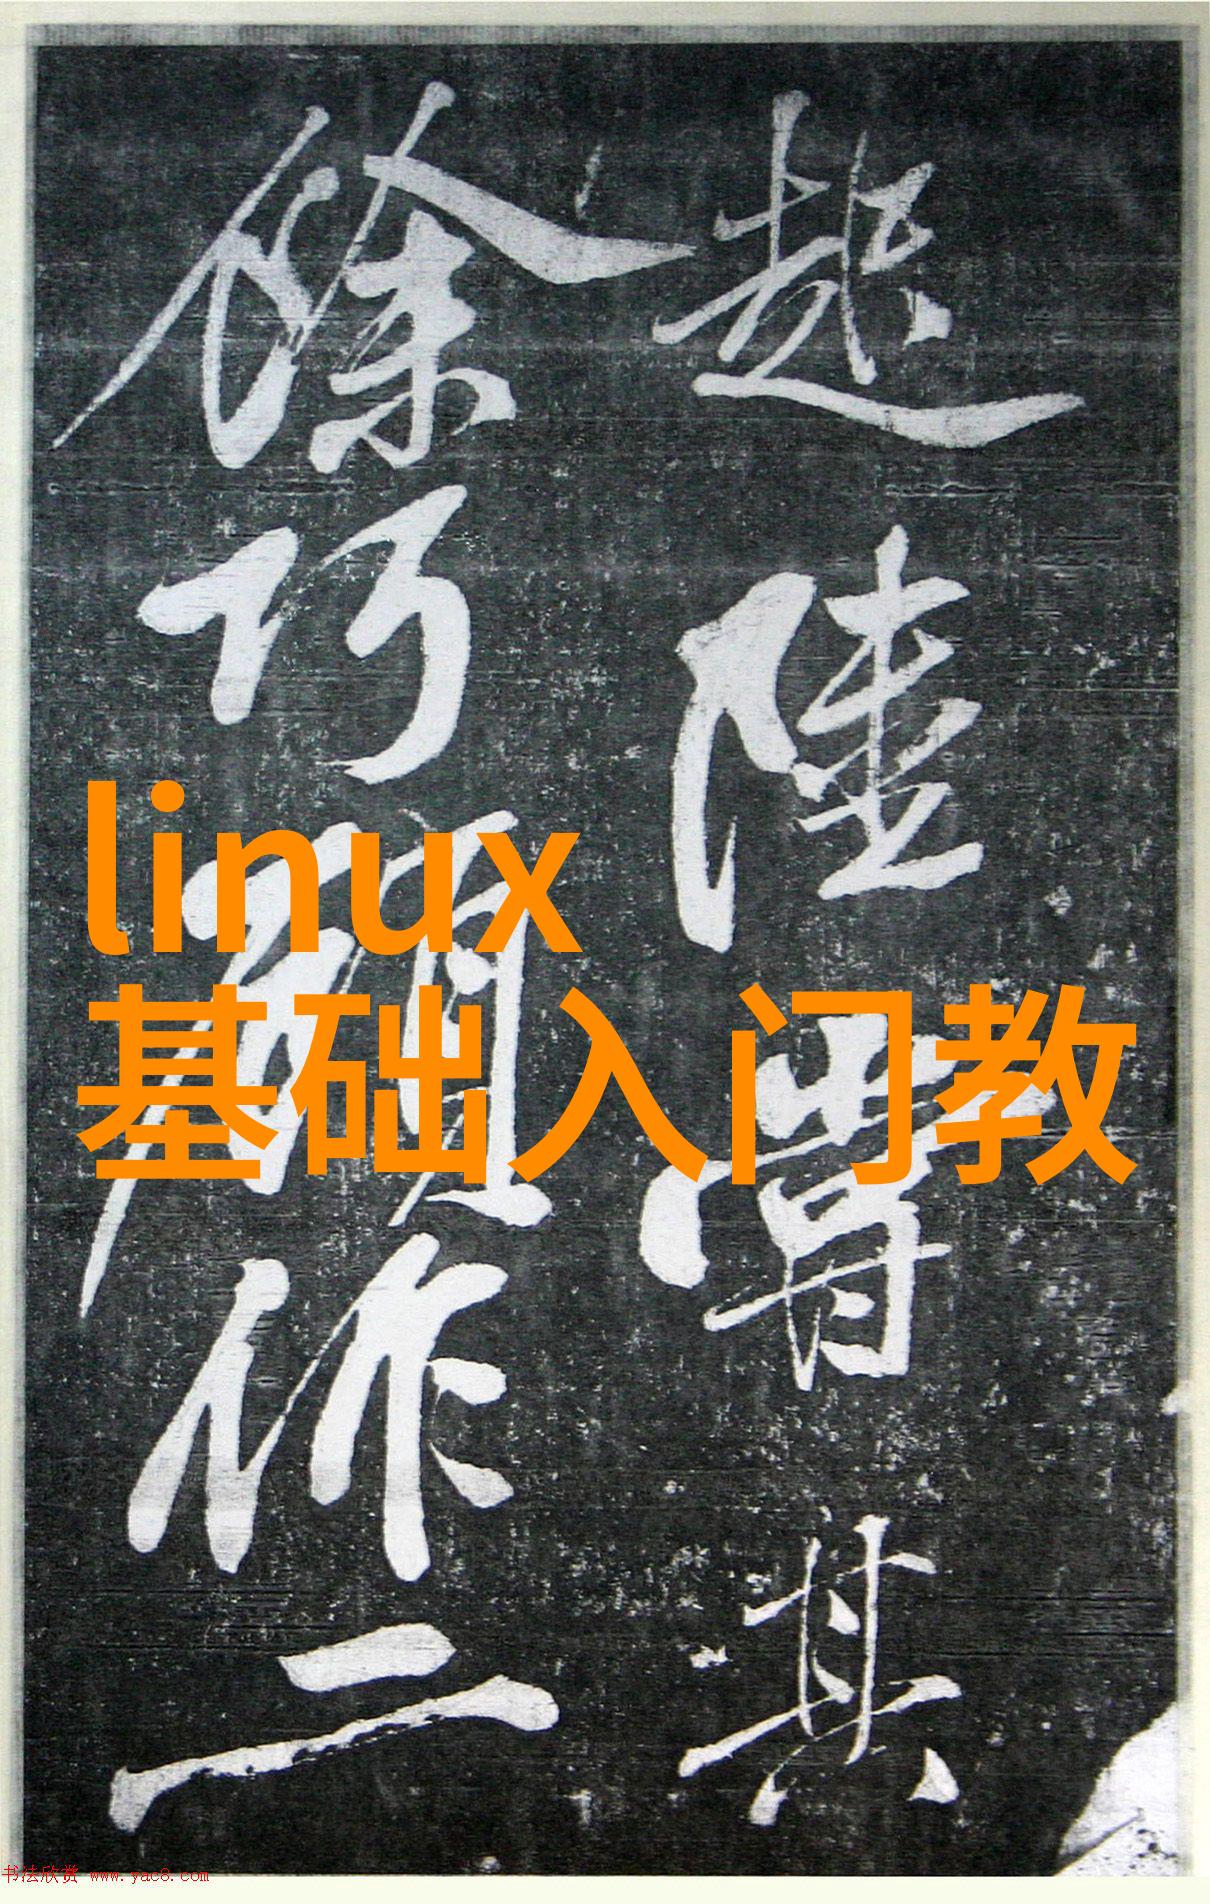 陸其
巧顧作二
linux
基础入门教
书法欣赏 www.yac8.com